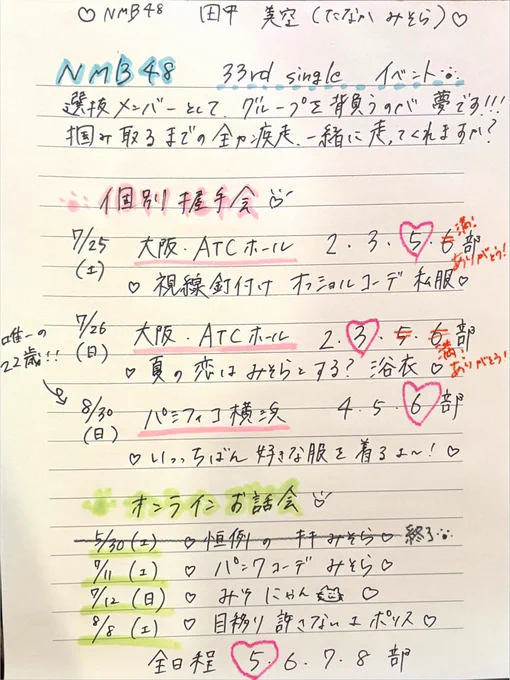 ♡ NMB48 田中 美空(たなか みそら)♡
NMB48 33rd single イベント
選抜メンバーとして、グループを背負うのが 夢です!!!
掴み取るまでの全力疾走、一緒に走ってくれますか?
個別握手会
7/25 (土) 大阪・ATCホール 2・3・5・6部
満! ありがとう!
♡ 視線釘付け オフショルコーデ 私服♡
7/26 (日) 大阪・ATCホール 2・3・5・6部
満! ありがとう!
♡ 夏の恋は みそらとする? 浴衣 ♡
唯一の22歳!!
8/30 (日) パシフィコ横浜 4・5・6部
♡ いっっちばん 好きな服を着るよ〜! ♡
オンラインお話会
5/30(土) ♡ 恒例の みそら♡ 終了
7/11(土) ♡ パンクコーデ みそら♡
7/12(日) ♡ みそにゃん ♡
8/8(土) ♡ 目移り許さないよ ポリス♡
全日程 5・6・7・8 部